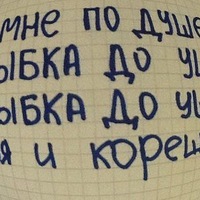 мне по душе
ЫБКА ДО УШ
ЫБКА ДО УШ
я и кореш